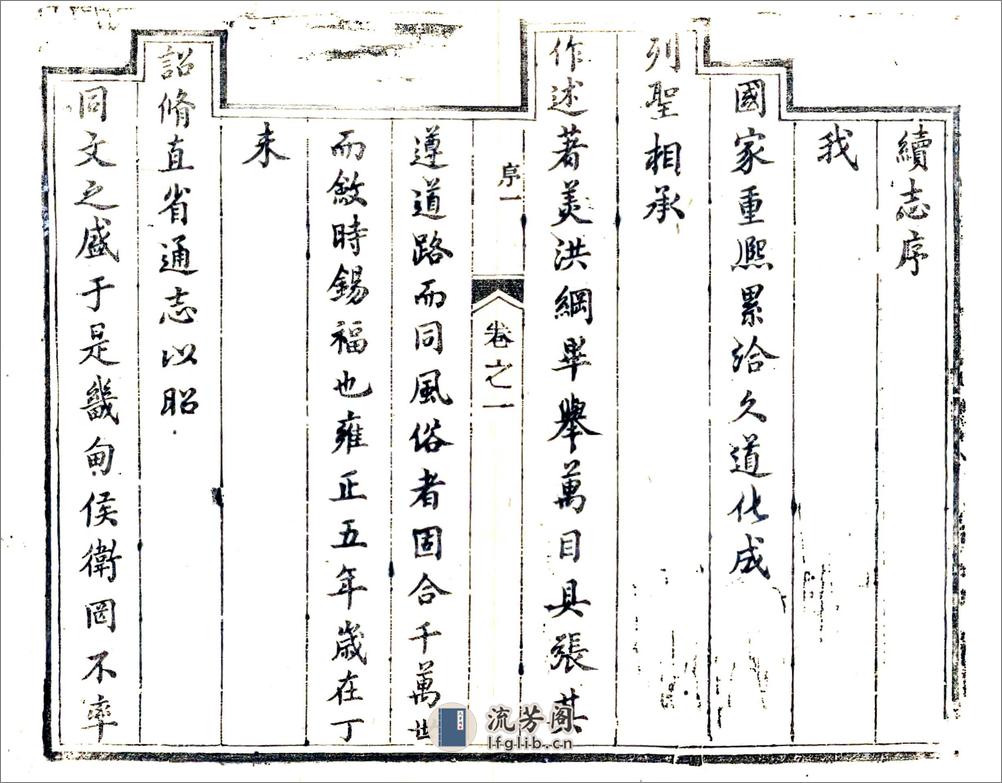 續志序
我
國家重熙累洽久道化成
列聖相承
作述著美洪綱畢舉萬目具張其
序一
卷之一
遵道路而同風俗者固合千萬世
而斂時錫福也雍正五年歲在丁
未
詔脩直省通志以昭
同文之盛于是畿甸侯衛罔不率
流芳阁
lfglib.cn